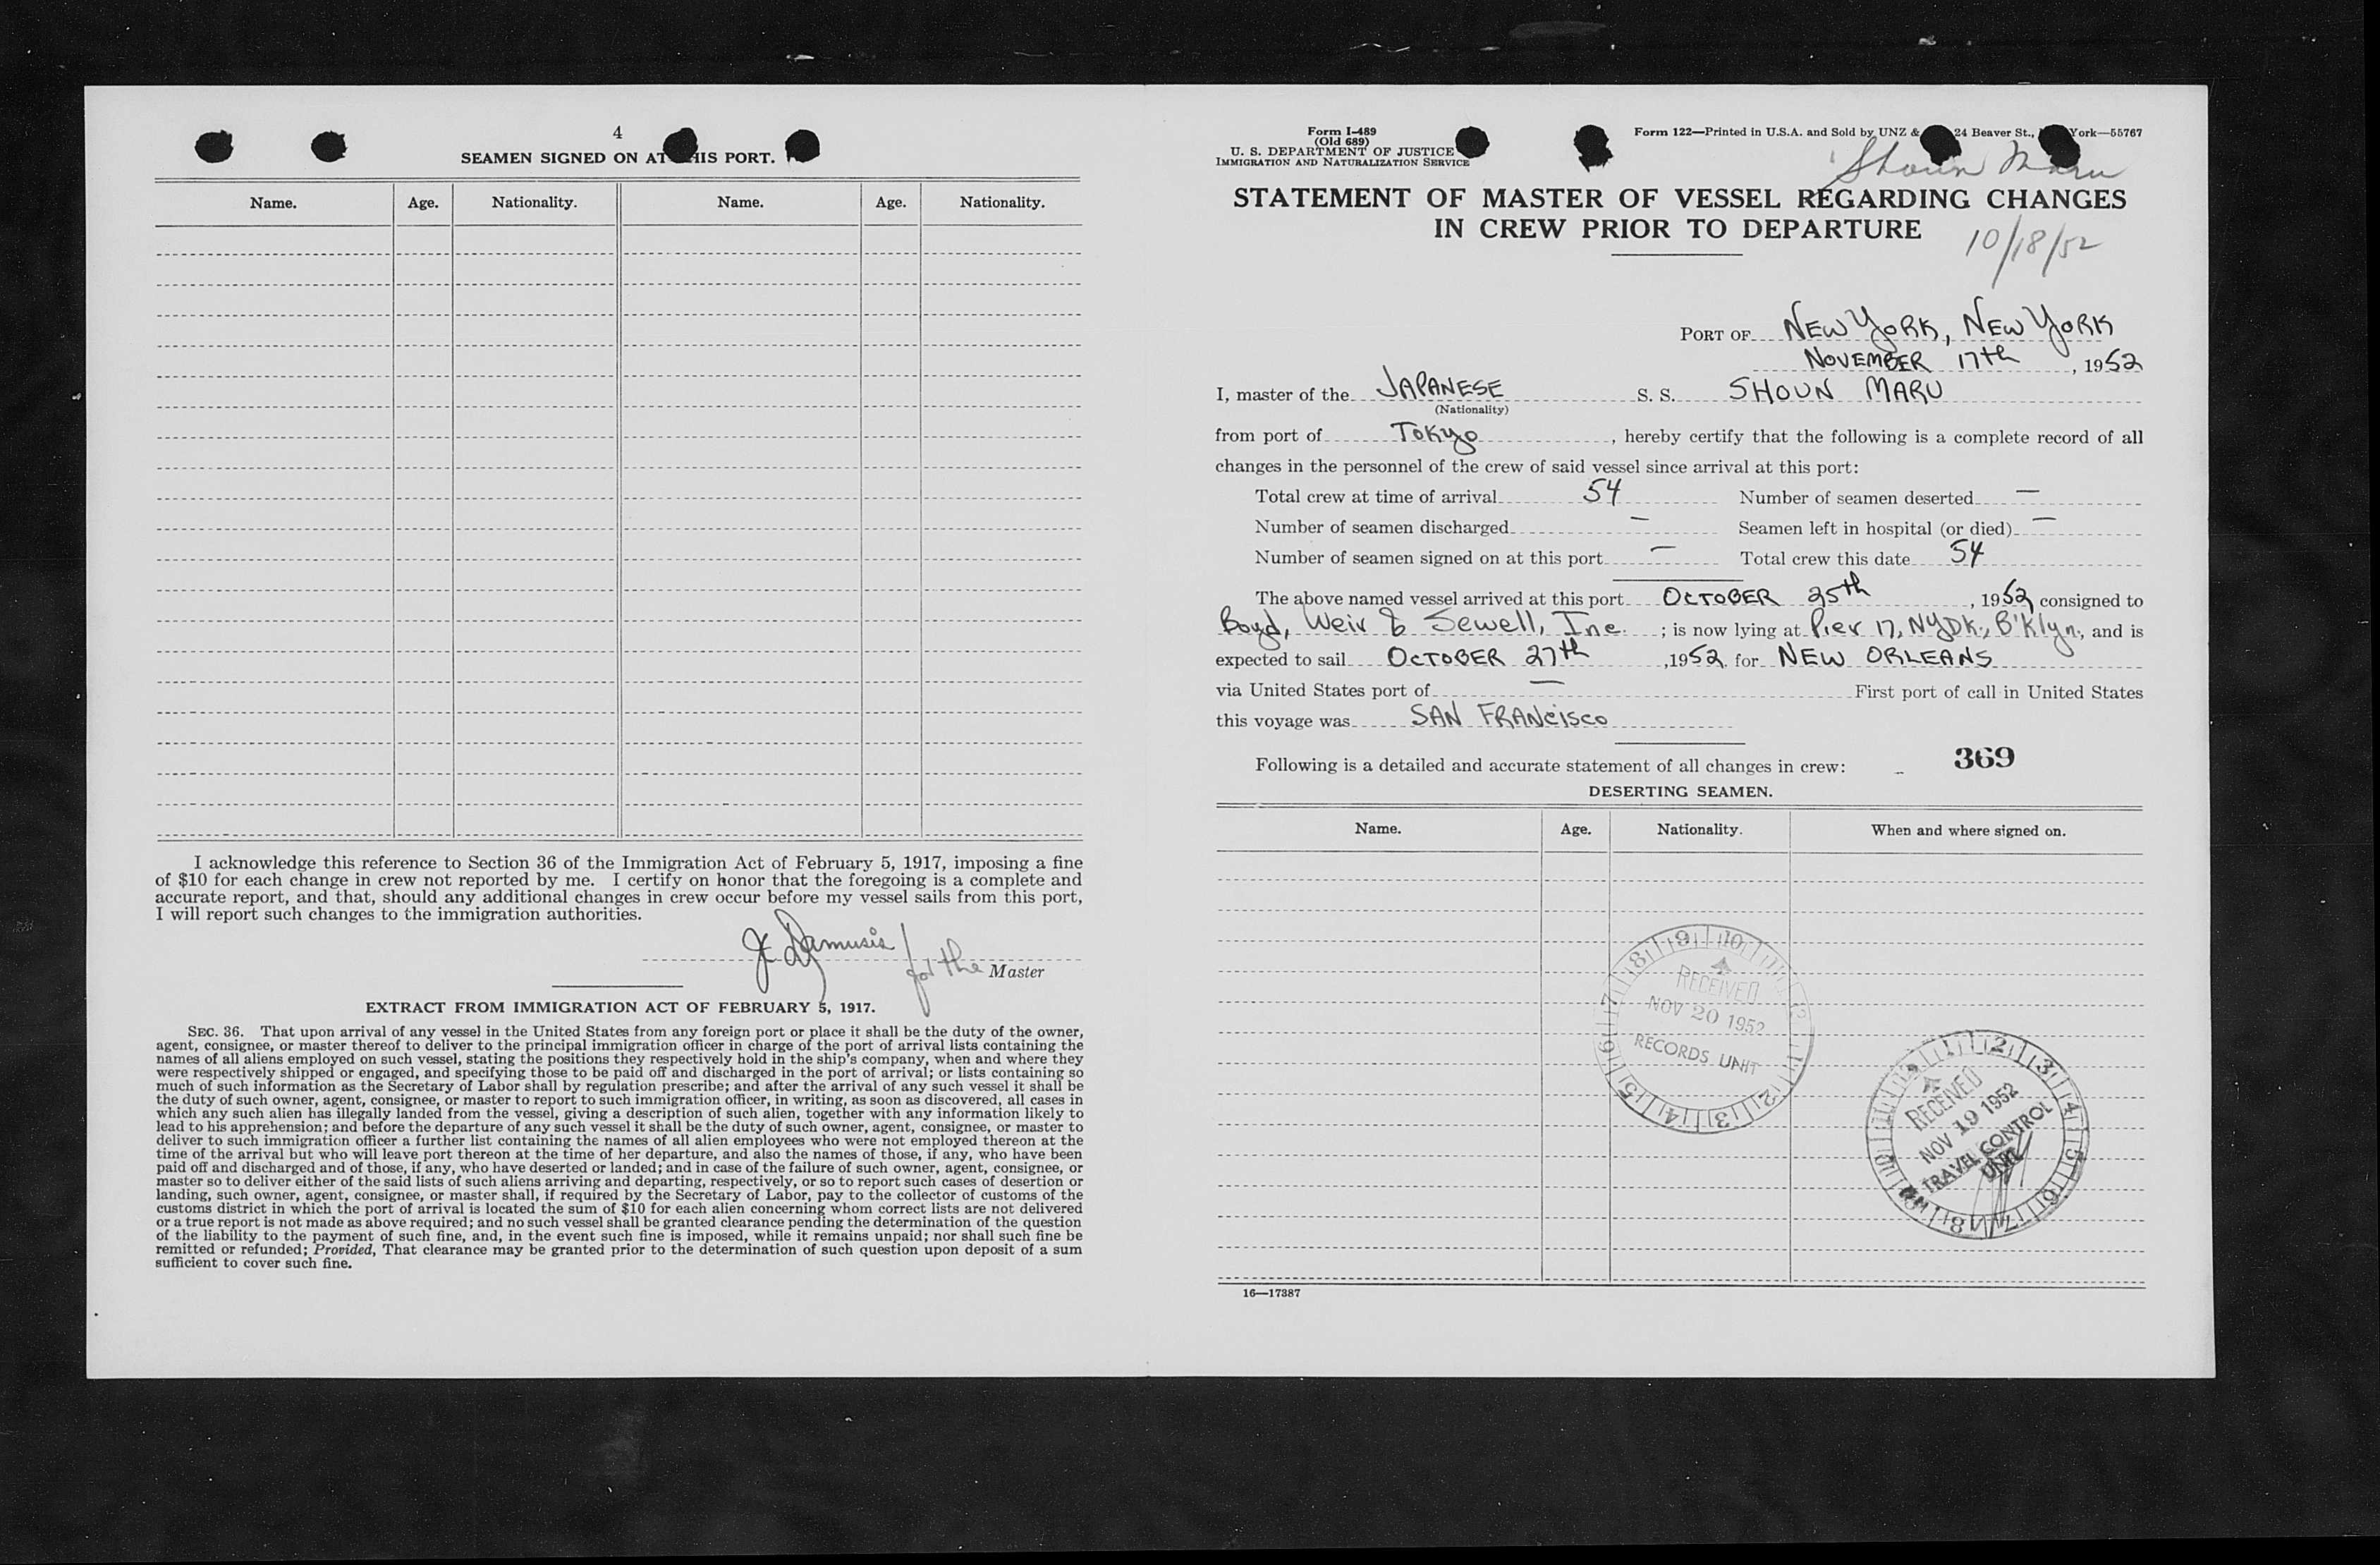 4
SEAMEN SIGNED ON AT THIS PORT.
Name. Age. Nationality. Name. Age. Nationality.
I acknowledge this reference to Section 36 of the Immigration Act of February 5, 1917, imposing a fine
of $10 for each change in crew not reported by me. I certify on honor that the foregoing is a complete and
accurate report, and that, should any additional changes in crew occur before my vessel sails from this port,
I will report such changes to the immigration authorities.
for the Master
EXTRACT FROM IMMIGRATION ACT OF FEBRUARY 5, 1917.
SEC. 36. That upon arrival of any vessel in the United States from any foreign port or place it shall be the duty of the owner,
agent, consignee, or master thereof to deliver to the principal immigration officer in charge of the port of arrival lists containing the
names of all aliens employed on such vessel, stating the positions they respectively hold in the ship's company, when and where they
were respectively shipped or engaged, and specifying those to be paid off and discharged in the port of arrival; or lists containing so
much of such information as the Secretary of Labor shall by regulation prescribe; and after the arrival of any such vessel it shall be
the duty of such owner, agent, consignee, or master to report to such immigration officer, in writing, as soon as discovered, all cases in
which any such alien has illegally landed from the vessel, giving a description of such alien, together with any information likely to
lead to his apprehension; and before the departure of any such vessel it shall be the duty of such owner, agent, consignee, or master to
deliver to such immigration officer a further list containing the names of all alien employees who were not employed thereon at the
time of the arrival but who will leave port thereon at the time of her departure, and also the names of those, if any, who have been
paid off and discharged and of those, if any, who have deserted or landed; and in case of the failure of such owner, agent, consignee, or
master so to deliver either of the said lists of such aliens arriving and departing, respectively, or so to report such cases of desertion or
landing, such owner, agent, consignee, or master shall, if required by the Secretary of Labor, pay to the collector of customs of the
customs district in which the port of arrival is located the sum of $10 for each alien concerning whom correct lists are not delivered
or a true report is not made as above required; and no such vessel shall be granted clearance pending the determination of the question
of the liability to the payment of such fine, and, in the event such fine is imposed, while it remains unpaid; nor shall such fine be
remitted or refunded; Provided, That clearance may be granted prior to the determination of such question upon deposit of a sum
sufficient to cover such fine.
Form I-489
(Old 689)
U. S. DEPARTMENT OF JUSTICE
IMMIGRATION AND NATURALIZATION SERVICE
Form 122—Printed in U.S.A. and Sold by UNZ & 24 Beaver St., York—55767
Shoun Maru
STATEMENT OF MASTER OF VESSEL REGARDING CHANGES
IN CREW PRIOR TO DEPARTURE
10/18/52
PORT OF NEW YORK, NEW YORK
NOVEMBER 17th, 1952
I, master of the JAPANESE S. S. SHOUN MARU
(Nationality)
from port of Tokyo, hereby certify that the following is a complete record of all
changes in the personnel of the crew of said vessel since arrival at this port:
Total crew at time of arrival 54 Number of seamen deserted —
Number of seamen discharged — Seamen left in hospital (or died) —
Number of seamen signed on at this port — Total crew this date 54
The above named vessel arrived at this port OCTOBER 25th, 1952 consigned to
Boyd, Weir & Sewell, Inc. ; is now lying at Pier 17, NYDK., B'Klyn., and is
expected to sail OCTOBER 27th, 1952 for NEW ORLEANS
via United States port of — First port of call in United States
this voyage was SAN FRANCISCO
Following is a detailed and accurate statement of all changes in crew:
369
DESERTING SEAMEN.
Name. Age. Nationality. When and where signed on.
RECEIVED
NOV 20 1952
RECORDS UNIT
RECEIVED
NOV 19 1952
TRAVEL CONTROL
UNIT
16—17387